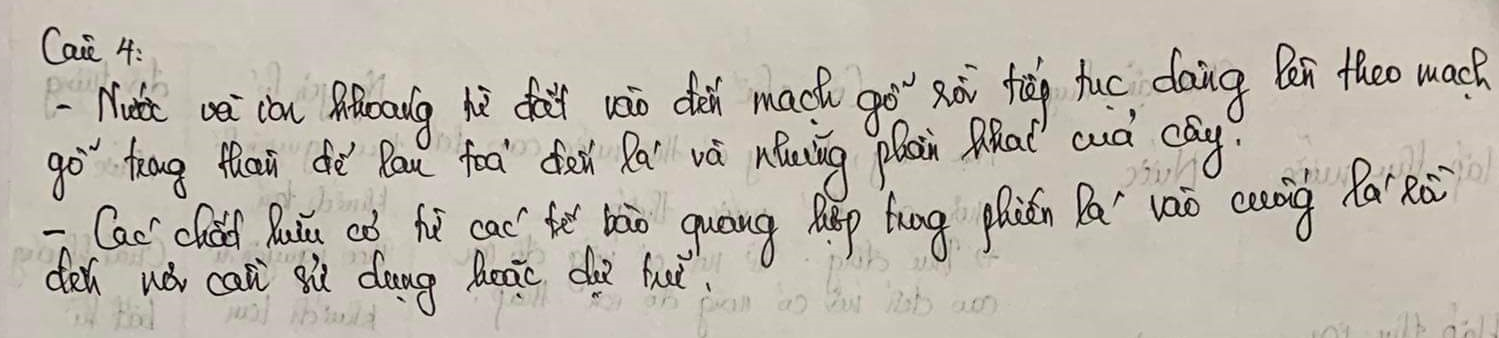 Câu 4:
- Nước và ion khoáng từ đất vào đến mạch gỗ rồi tiếp tục dâng lên theo mạch
gỗ trong thân để lan toả đến lá và những phần khác của cây.
- Các chất hữu cơ từ các tế bào quang hợp trong phiến lá vào cuống lá rồi
đến nơi cần sử dụng hoặc dự trữ.